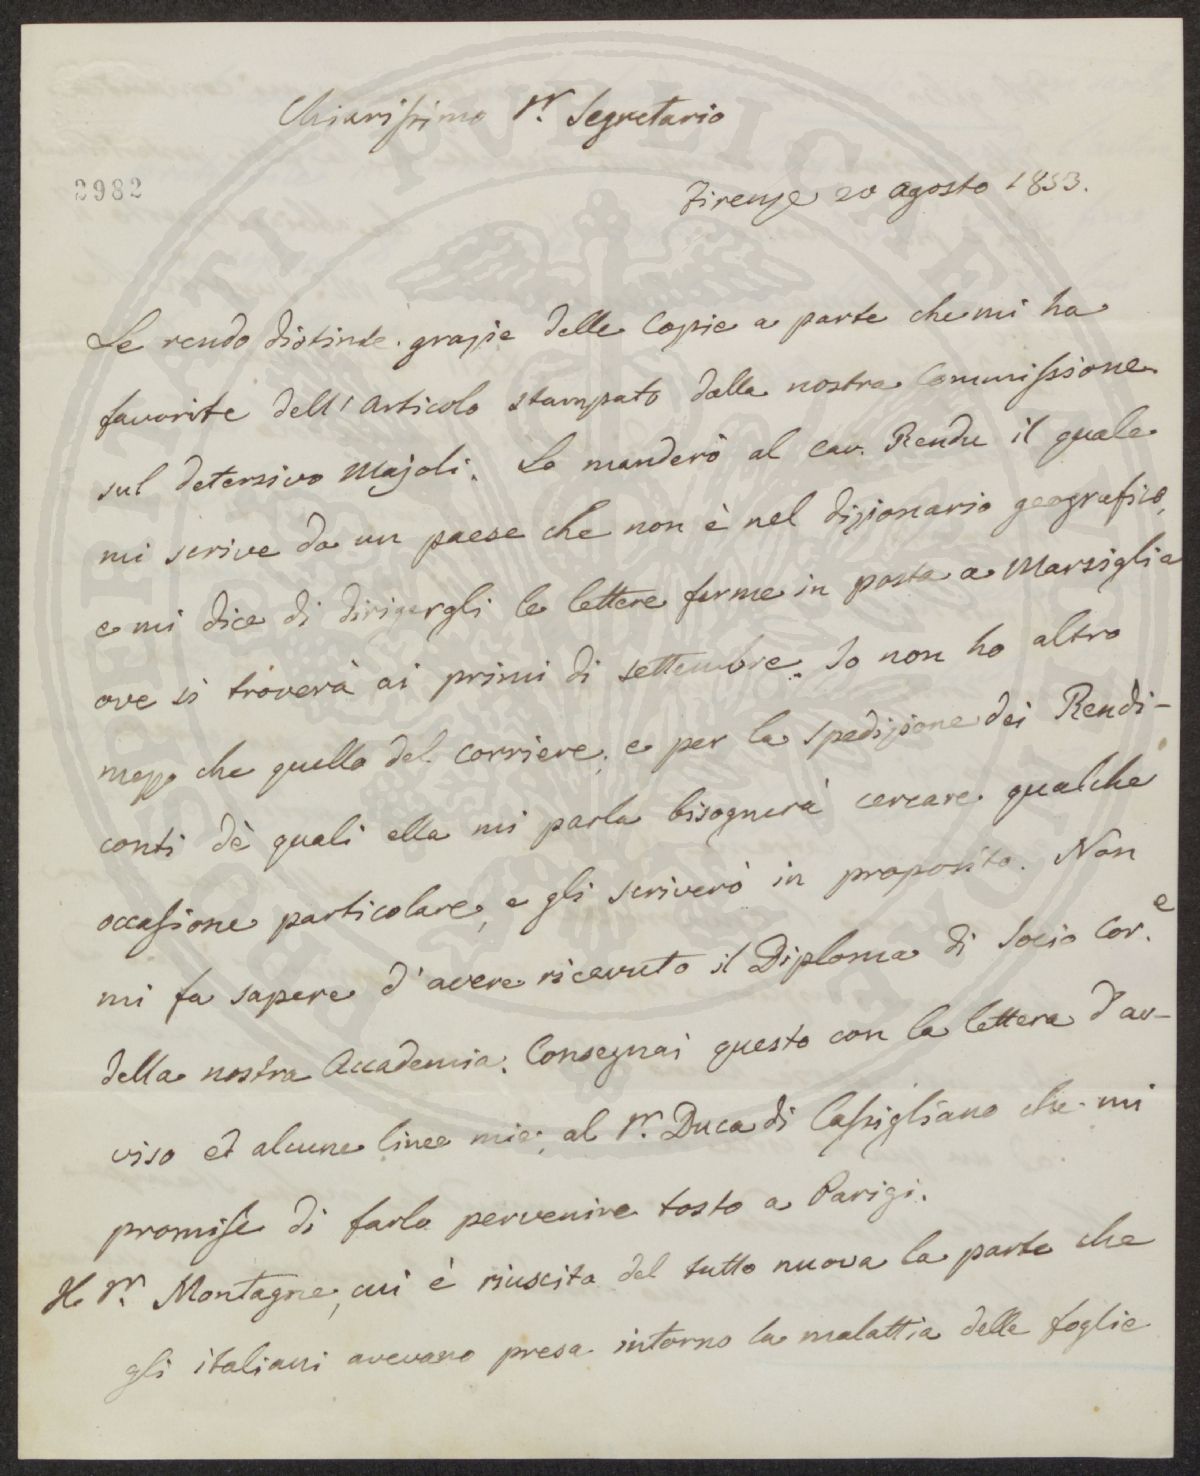 Chiarissimo Sr. Segretario
2982
Firenze 20 Agosto 1853.
Le rendo distinte grazie delle Copie a parte che mi ha
favorite dell'Articolo stampato dalla nostra Commissione
sul detersivo Majoli. Lo manderò al Cav. Rendu il quale
mi scrive da un paese che non è nel dizionario geografico,
e mi dice di dirigergli le lettere ferme in posta a Marsiglia
ove si troverà ai primi di settembre. Io non ho altro
mezzo che quello del corriere, e per la spedizione dei Rendi-
conti dè quali ella mi parla bisognerà cercare qualche
occasione particolare, e gli scriverò in proposito. Non
mi fa sapere d'avere ricevuto il Diploma di Socio Cor.e
della nostra Accademia. Consegnai questo con la lettera d'av-
viso ed alcune linee mie, al Sr. Duca di Cassigliano che mi
promise di farlo pervenire tosto a Parigi.
Il Sr. Montagne, cui è riuscita del tutto nuova la parte che
gli italiani avevano presa intorno la malattia delle foglie